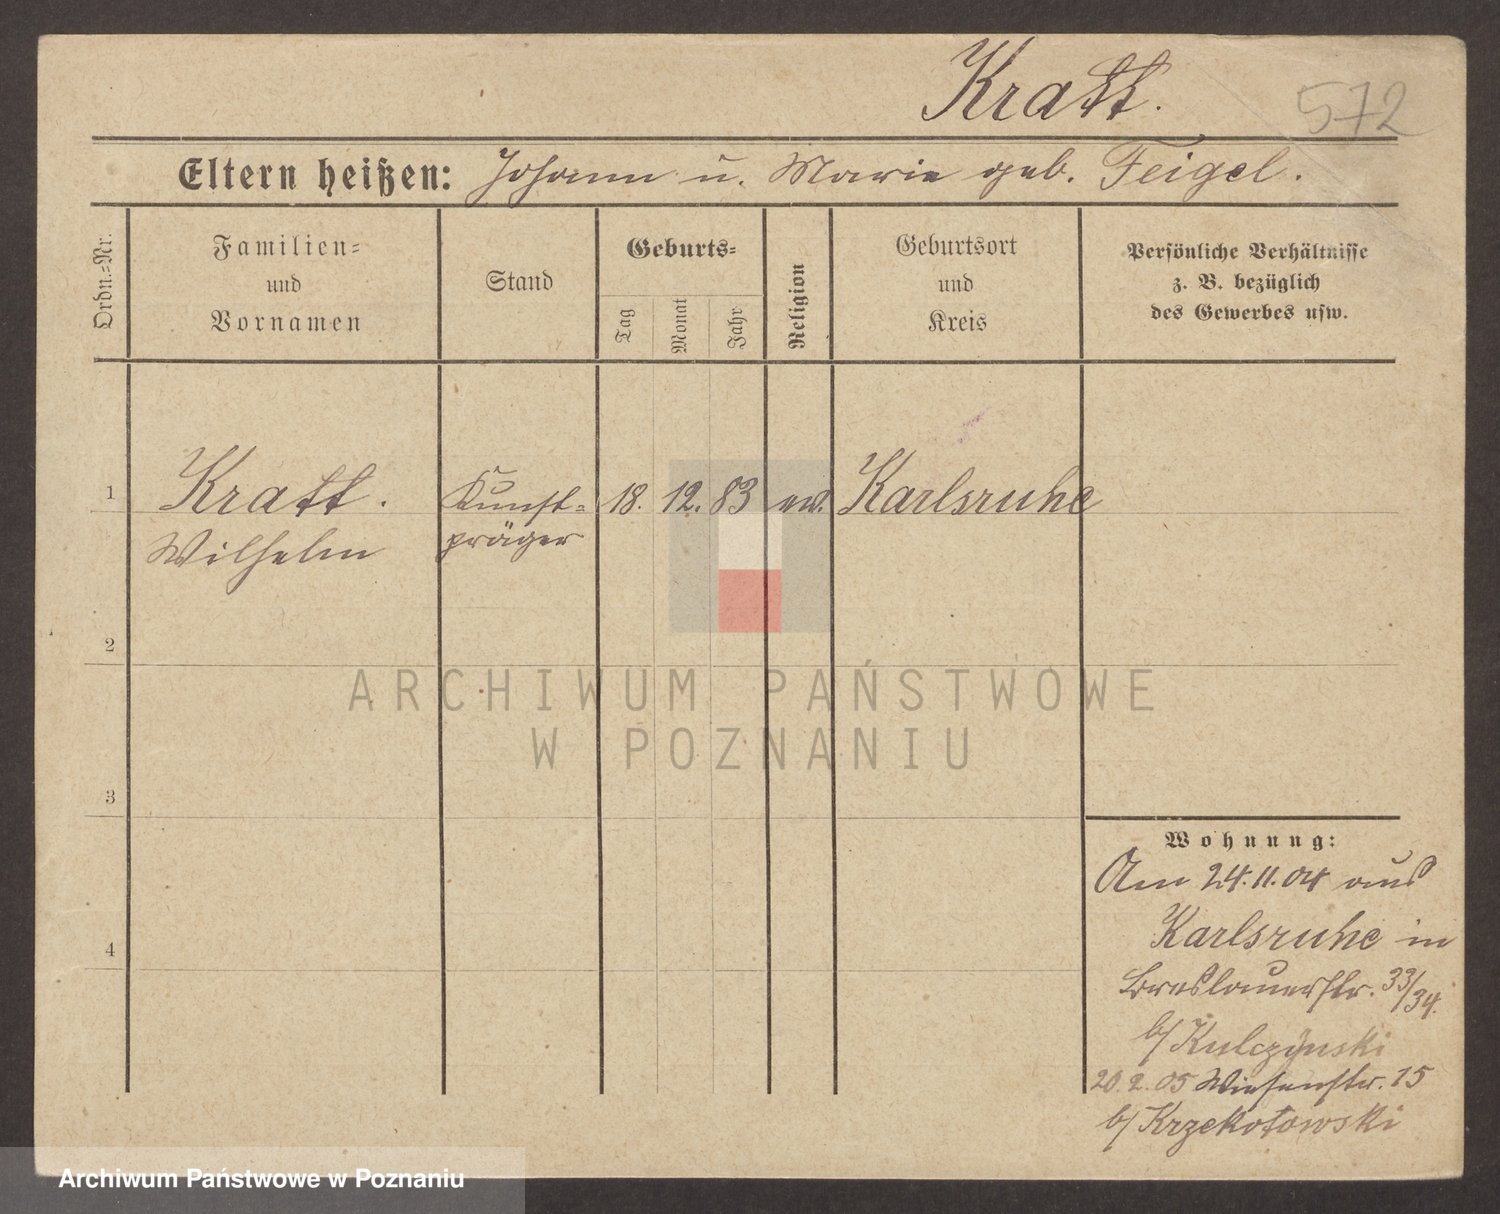 Kratt.
572
Eltern heißen: Johann u. Marie geb. Feigel.
Ordn.=Nr.
Familien=
und
Vornamen
Stand
Geburts=
Tag
Monat
Jahr
Religion
Geburtsort
und
Kreis
Persönliche Verhältnisse
z. B. bezüglich
des Gewerbes usw.
1
Kratt.
Wilhelm
Kunst=
präger
18. 12. 83
ev.
Karlsruhe
2
3
4
Wohnung:
Am 24.11.04 aus
Karlsruhe in
Breslauerstr. 33/34.
b/ Kulczynski
20.2.05 Wiesenstr. 15
b/ Krzekotowski
ARCHIWUM PAŃSTWOWE
W POZNANIU
Archiwum Państwowe w Poznaniu